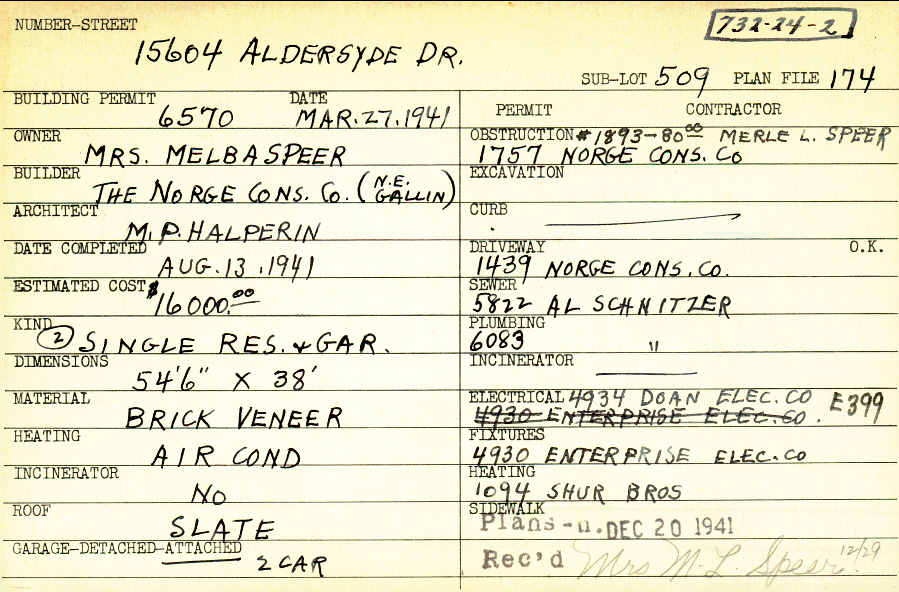 732-24-2
NUMBER-STREET
15604 ALDERSYDE DR.
SUB-LOT 509 PLAN FILE 174
BUILDING PERMIT 6570 DATE MAR.27.1941
OWNER MRS. MELBA SPEER
BUILDER THE NORGE CONS. CO. (N.E. GALLIN)
ARCHITECT M.P. HALPERIN
DATE COMPLETED AUG.13.1941
ESTIMATED COST $16000.00
KIND (2) SINGLE RES. & GAR.
DIMENSIONS 54'6" X 38'
MATERIAL BRICK VENEER
HEATING AIR COND
INCINERATOR NO
ROOF SLATE
GARAGE-DETACHED-ATTACHED 2 CAR
PERMIT CONTRACTOR
OBSTRUCTION #1893-80.00 MERLE L. SPEER
1757 NORGE CONS. CO
EXCAVATION
CURB
DRIVEWAY O.K.
1439 NORGE CONS. CO.
SEWER
5822 AL SCHNITZER
PLUMBING
6083 "
INCINERATOR
ELECTRICAL 4934 DOAN ELEC. CO E399
4930 ENTERPRISE ELEC. CO.
FIXTURES
4930 ENTERPRISE ELEC. CO
HEATING
1094 SHUR BROS
SIDEWALK
Plans - DEC 20 1941
Rec'd Mrs M. L. Speer 12/29